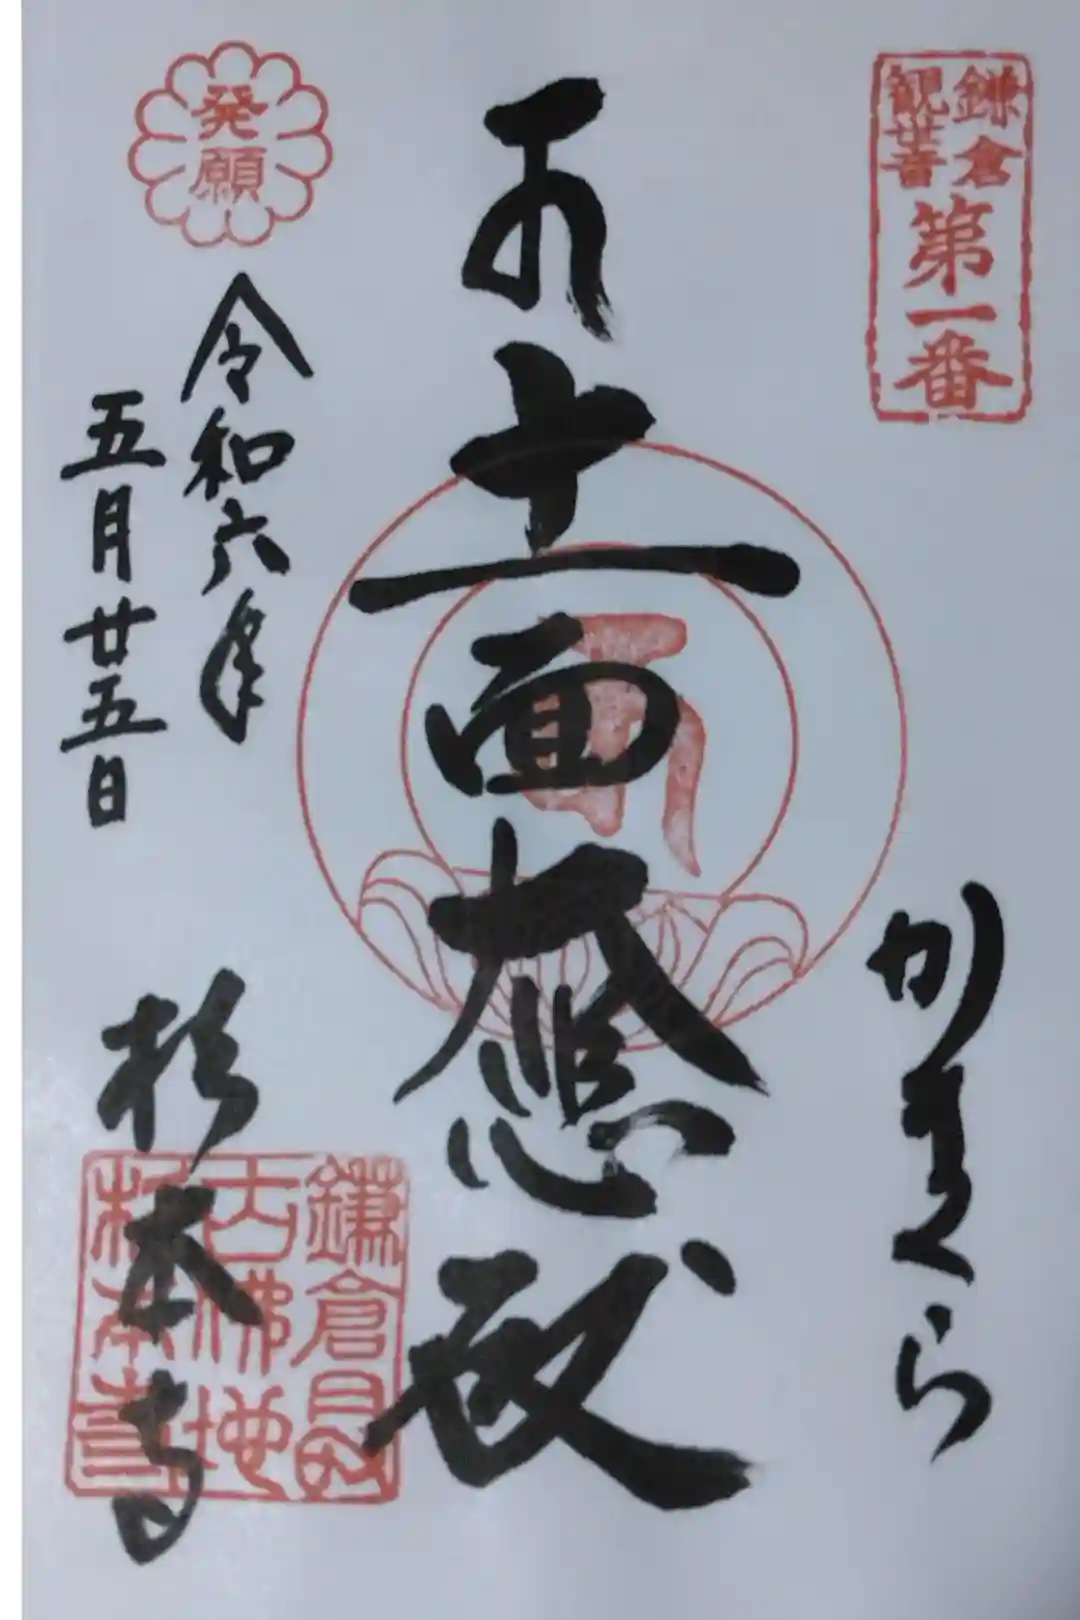 鎌倉
観世音
第一番
かまくら
十一面大悲殿
発願
令和六年
五月廿五日
杉本寺
鎌倉最
古佛地
杉本寺